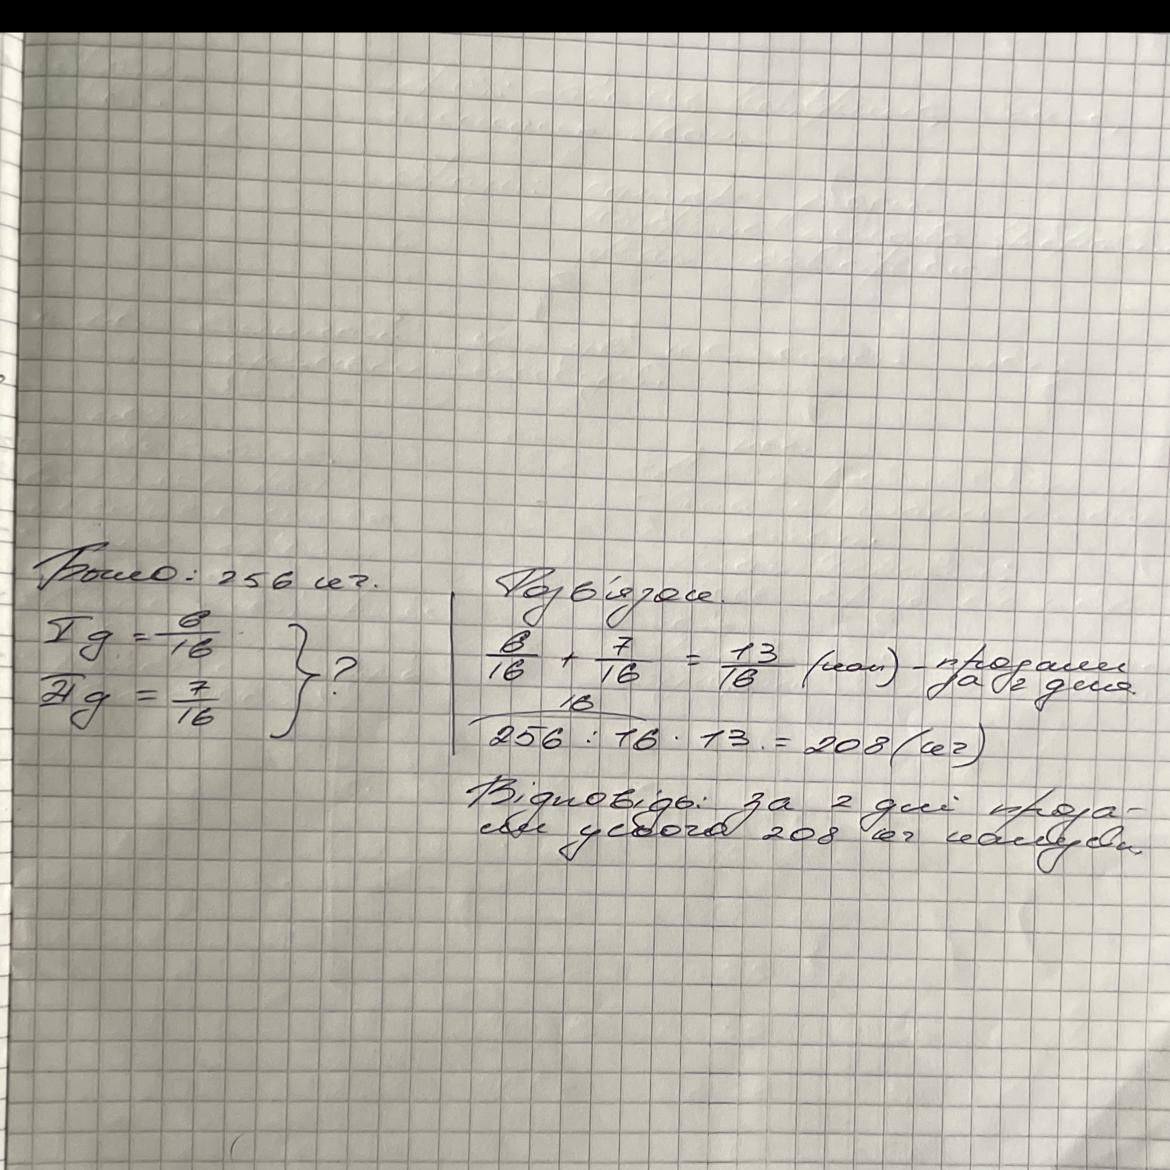 Було: 256 кг.
I д = 6/16
II д = 7/16
} ?
Розв'язок.
6/16 + 7/16 = 13/16 (кап) - продали
за 2 дня.
16
256 : 16 · 13 = 208 (кг)
Відповідь: за 2 дні прода-
ли усього 208 кг капусти.